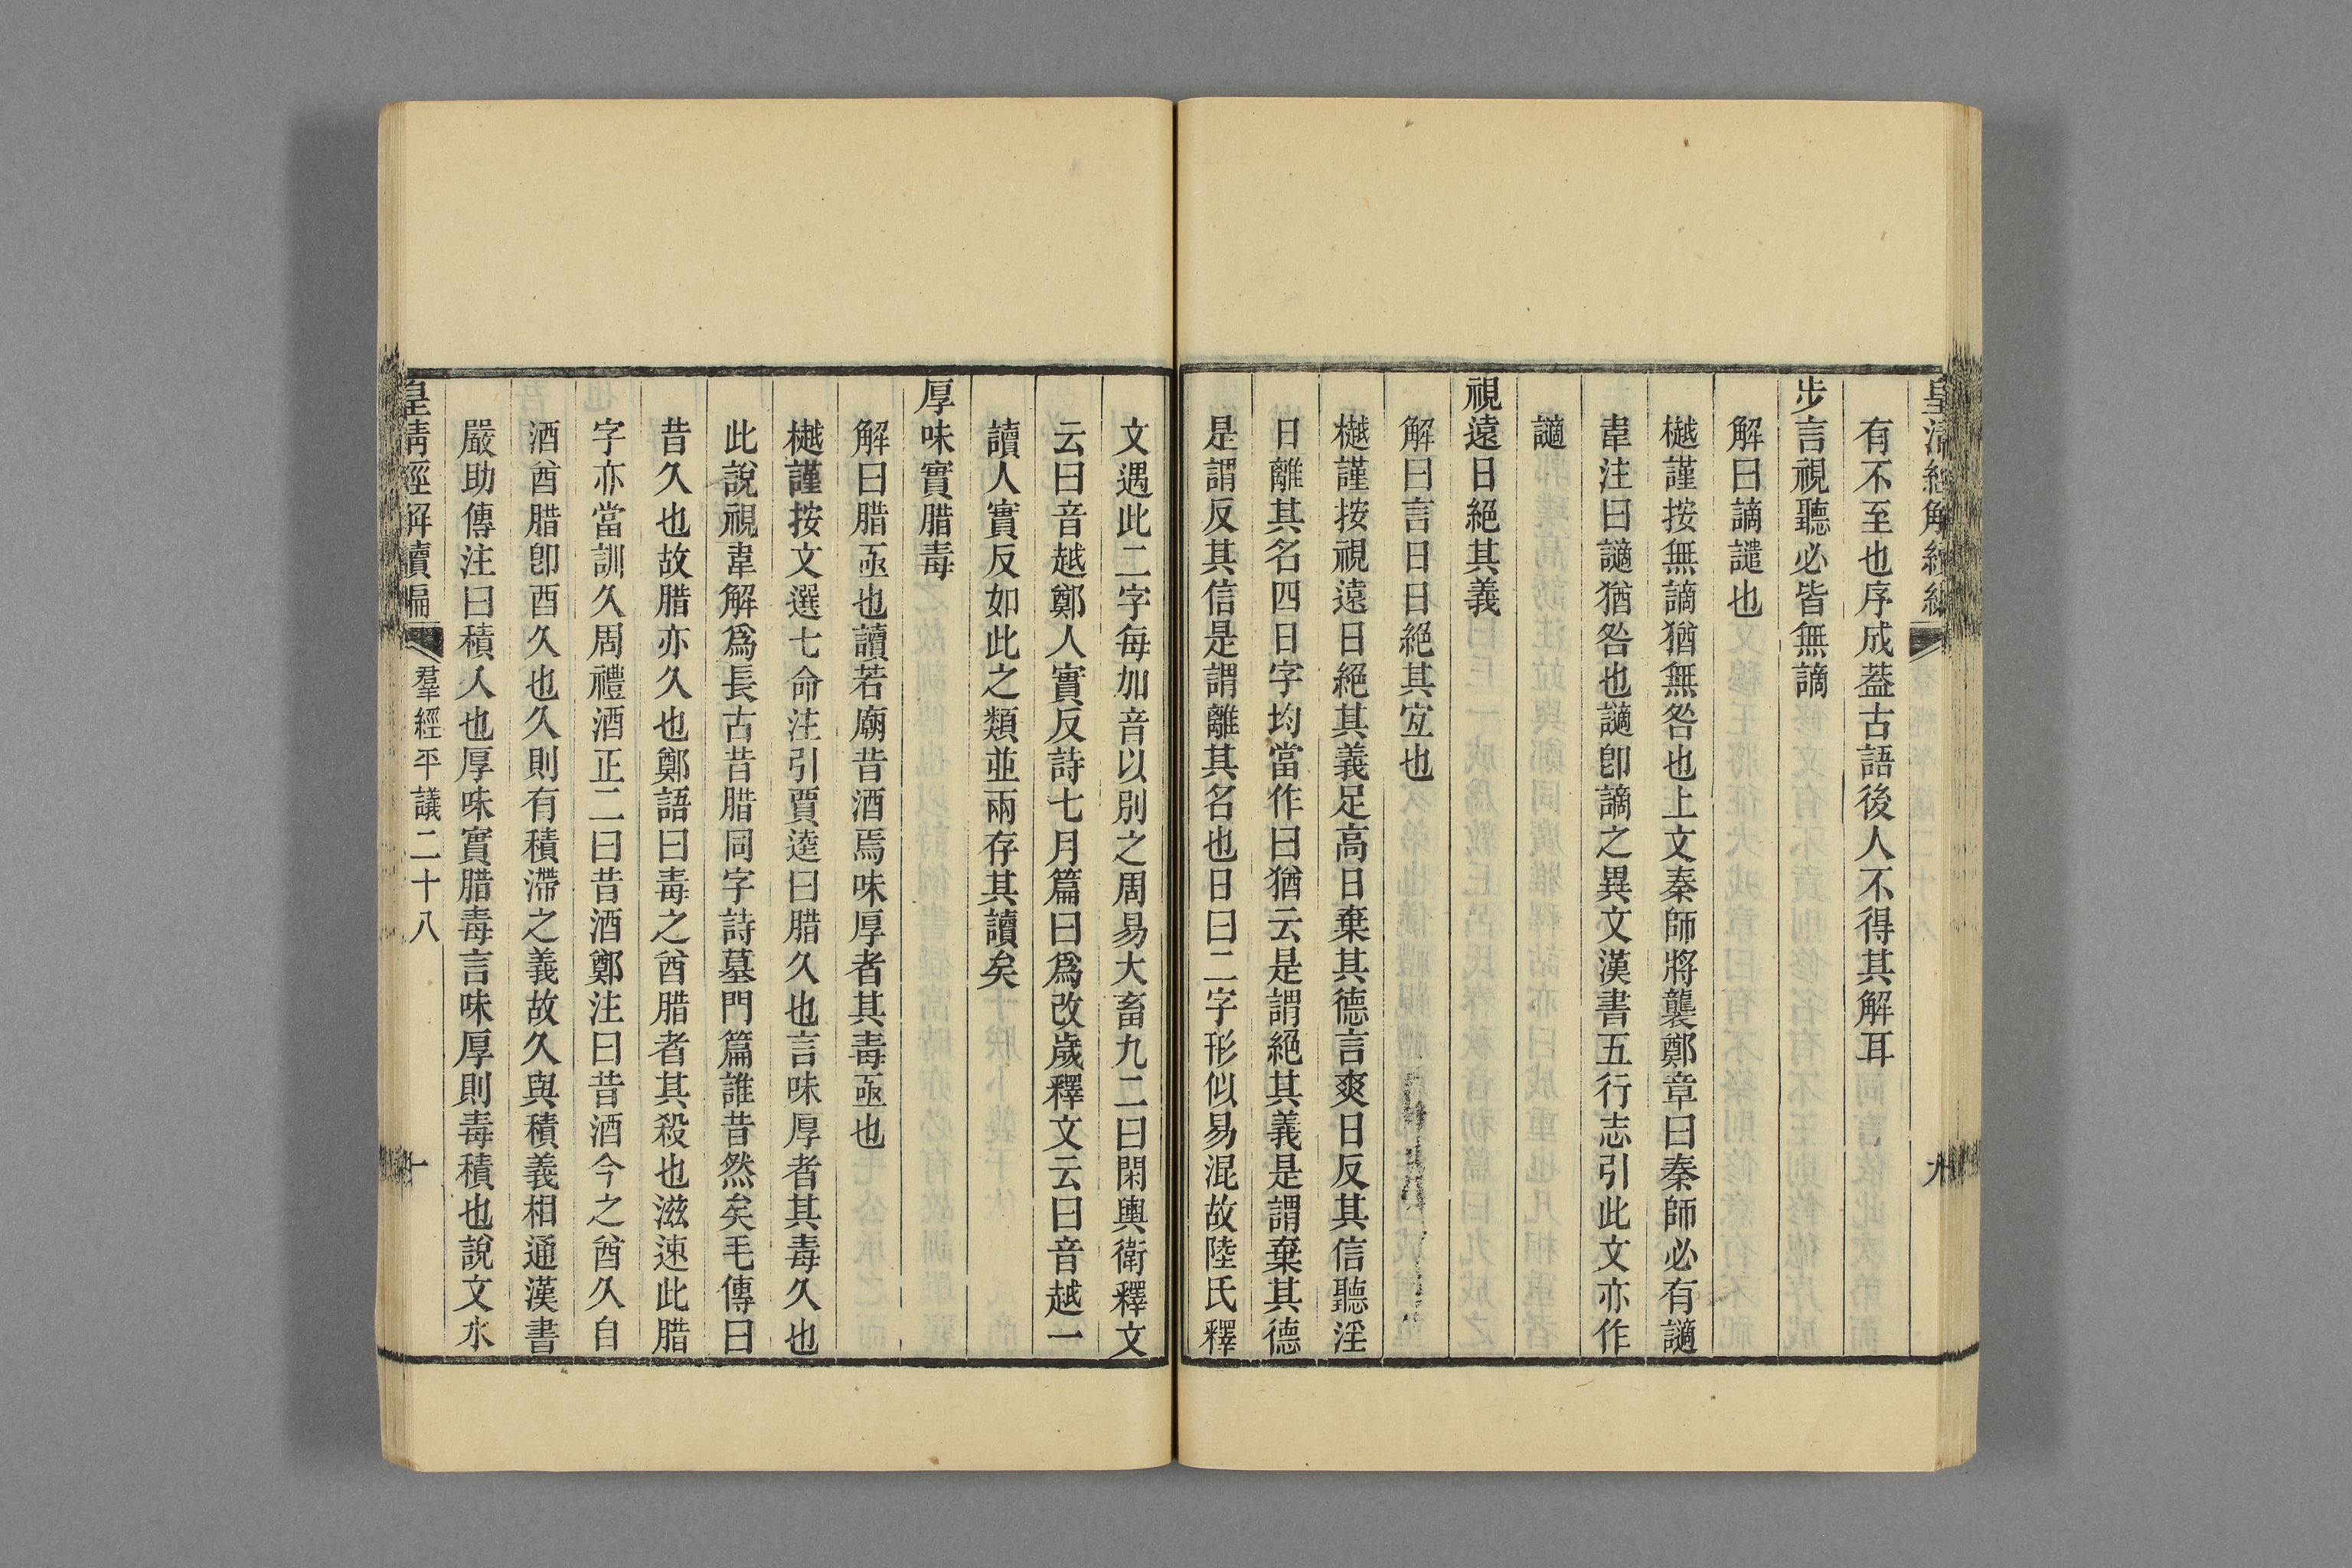 皇清經解續編
九
有不至也序成蓋古語後人不得其解耳
步言視聽必皆無謫
解曰謫譴也
樾謹按無謫猶無咎也上文秦師將襲鄭章曰秦師必有讁
韋注曰讁猶咎也讁卽謫之異文漢書五行志引此文亦作
讁
視遠日絕其義
解曰言日日絕其宐也
樾謹按視遠日絕其義足高日棄其德言爽日反其信聽淫
日離其名四日字均當作曰猶云是謂絕其義是謂棄其德
是謂反其信是謂離其名也日曰二字形似易混故陸氏釋
文遇此二字每加音以別之周易大畜九二曰閑輿衛釋文
云曰音越鄭人實反詩七月篇曰爲改歲釋文云曰音越一
讀人實反如此之類並兩存其讀矣
厚味實腊毒
解曰腊亟也讀若廟昔酒焉味厚者其毒亟也
樾謹按文選七命注引賈逵曰腊久也言味厚者其毒久也
此說視韋解爲長古昔腊同字詩墓門篇誰昔然矣毛傳曰
昔久也故腊亦久也鄭語曰毒之酋腊者其殺也滋速此腊
字亦當訓久周禮酒正二曰昔酒鄭注曰昔酒今之酋久白
酒酋腊卽酉久也久則有積滯之義故久與積義相通漢書
嚴助傳注曰積久也厚味實腊毒言味厚則毒積也說文水
皇清經解續編
羣經平議二十八
十